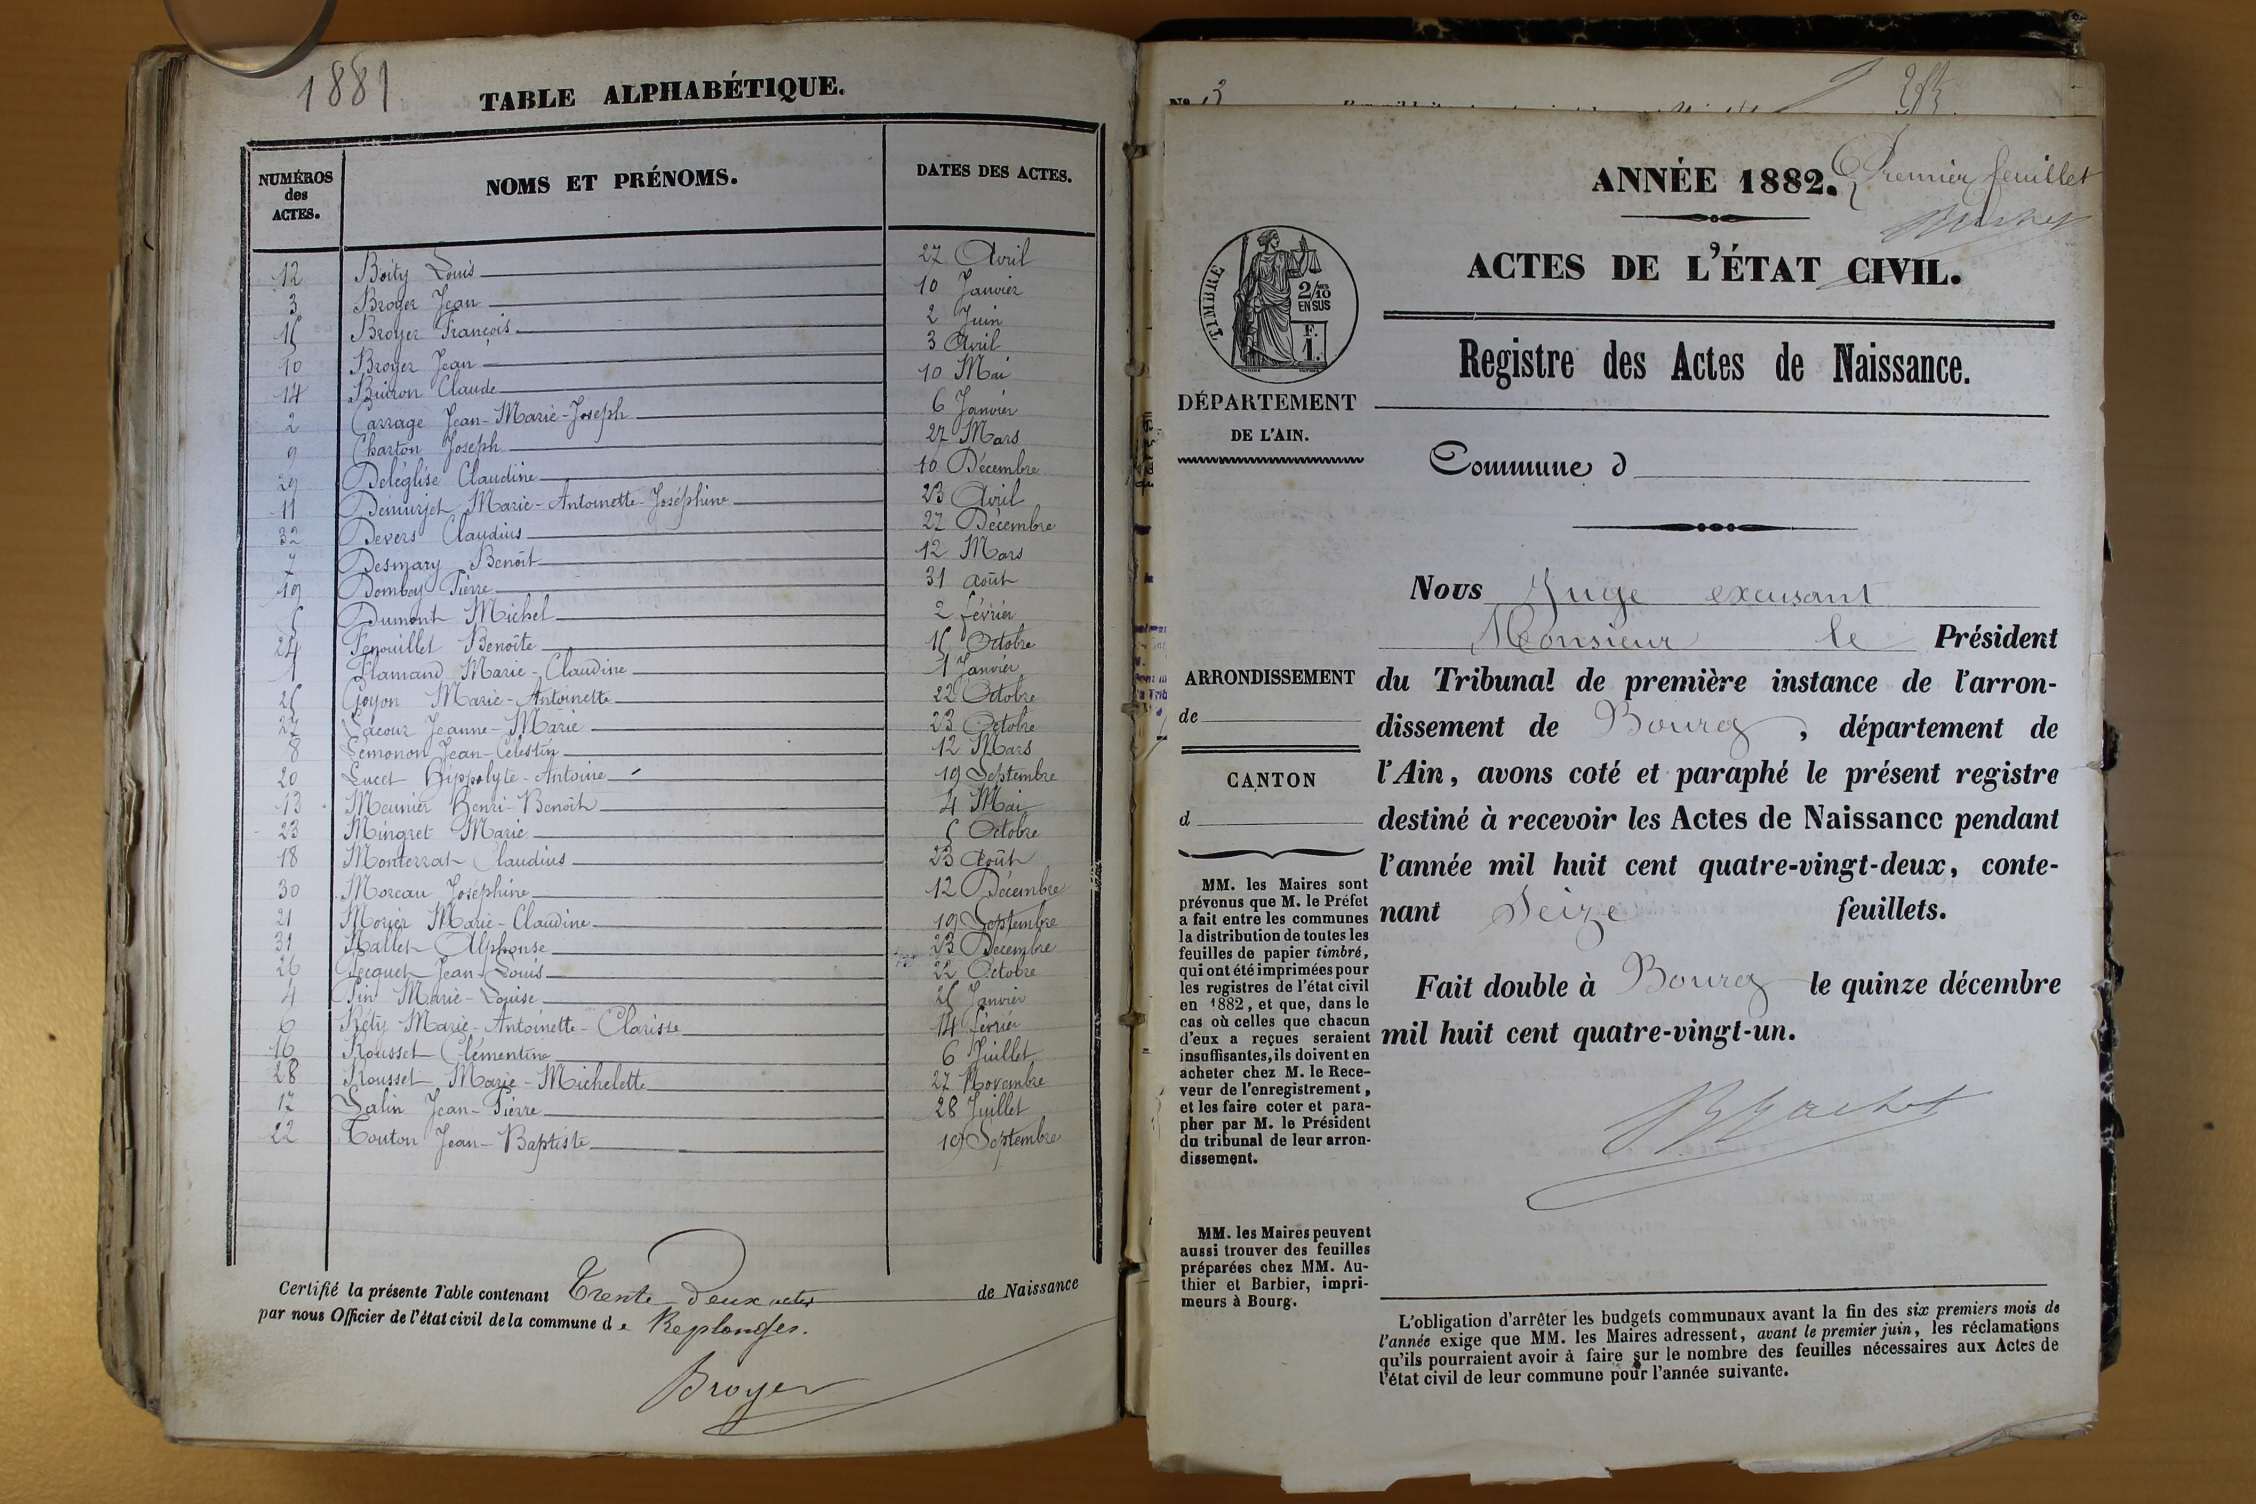 1881
TABLE ALPHABÉTIQUE.
NUMÉROS des ACTES. NOMS ET PRÉNOMS. DATES DES ACTES.
12 Boity Louis 27 Avril
3 Broyer Jean 10 Janvier
15 Broyer François 2 Juin
10 Broyer Jean 3 Avril
14 Buiron Claude 10 Mai
2 Carrage Jean-Marie-Joseph 6 Janvier
9 Charton Joseph 27 Mars
29 Deléglise Claudine 10 Décembre
11 Démurjet Marie-Antoinette-Joséphine 23 Avril
32 Devers Claudius 27 Décembre
7 Desmary Benoît 12 Mars
19 Dombey Pierre 31 Août
5 Dumont Michel 2 février
24 Fenouillet Benoîte 15 Octobre
1 Flamand Marie-Claudine 1 Janvier
25 Goyon Marie-Antoinette 22 Octobre
27 Lacour Jeanne-Marie 23 Octobre
8 Lémonon Jean-Célestin 12 Mars
20 Lucet Hippolyte-Antoine 19 Septembre
13 Meunier Henri-Benoît 4 Mai
23 Mingret Marie 5 Octobre
18 Monterrat Claudius 23 Août
30 Moreau Joséphine 12 Décembre
21 Morier Marie-Claudine 19 Septembre
31 Pallet Alphonse 23 Décembre
26 Pecquet Jean-Louis 22 Octobre
4 Pin Marie-Louise 25 Janvier
6 Réty Marie-Antoinette-Clarisse 14 février
16 Rousset Clémentine 6 Juillet
28 Rousset Marie-Michelette 27 Novembre
17 Salin Jean-Pierre 28 Juillet
22 Touton Jean-Baptiste 19 Septembre
Certifié la présente Table contenant Trente-Deux actes de Naissance
par nous Officier de l'état civil de la commune de Replonges.
Broyer
No 3
ANNÉE 1882.
Premier feuillet
ACTES DE L'ÉTAT CIVIL.
TIMBRE
2/10 EN SUS
F. 1.
Registre des Actes de Naissance.
DÉPARTEMENT
DE L'AIN.
Commune d
Nous Juge excusant
Monsieur le Président
ARRONDISSEMENT
de
du Tribunal de première instance de l'arron-
dissement de Bourg, département de
l'Ain, avons coté et paraphé le présent registre
destiné à recevoir les Actes de Naissance pendant
l'année mil huit cent quatre-vingt-deux, conte-
nant Seize feuillets.
Fait double à Bourg le quinze décembre
mil huit cent quatre-vingt-un.
CANTON
d
MM. les Maires sont
prévenus que M. le Préfet
a fait entre les communes
la distribution de toutes les
feuilles de papier timbré,
qui ont été imprimées pour
les registres de l'état civil
en 1882, et que, dans le
cas où celles que chacun
d'eux a reçues seraient
insuffisantes, ils doivent en
acheter chez M. le Rece-
veur de l'enregistrement,
et les faire coter et para-
pher par M. le Président
du tribunal de leur arron-
dissement.
MM. les Maires peuvent
aussi trouver des feuilles
préparées chez MM. Au-
thier et Barbier, impri-
meurs à Bourg.
L'obligation d'arrêter les budgets communaux avant la fin des six premiers mois de
l'année exige que MM. les Maires adressent, avant le premier juin, les réclamations
qu'ils pourraient avoir à faire sur le nombre des feuilles nécessaires aux Actes de
l'état civil de leur commune pour l'année suivante.